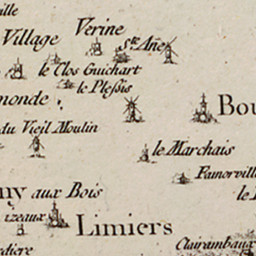 ville
Village
Verine
Ste. Ane
le Clos Guichart
le Plessis
monde
Bou
du Vieil Moulin
le Marchais
Famorvill
ny aux Bois
le
izeaux
Limiers
Clairambaux
rdiere